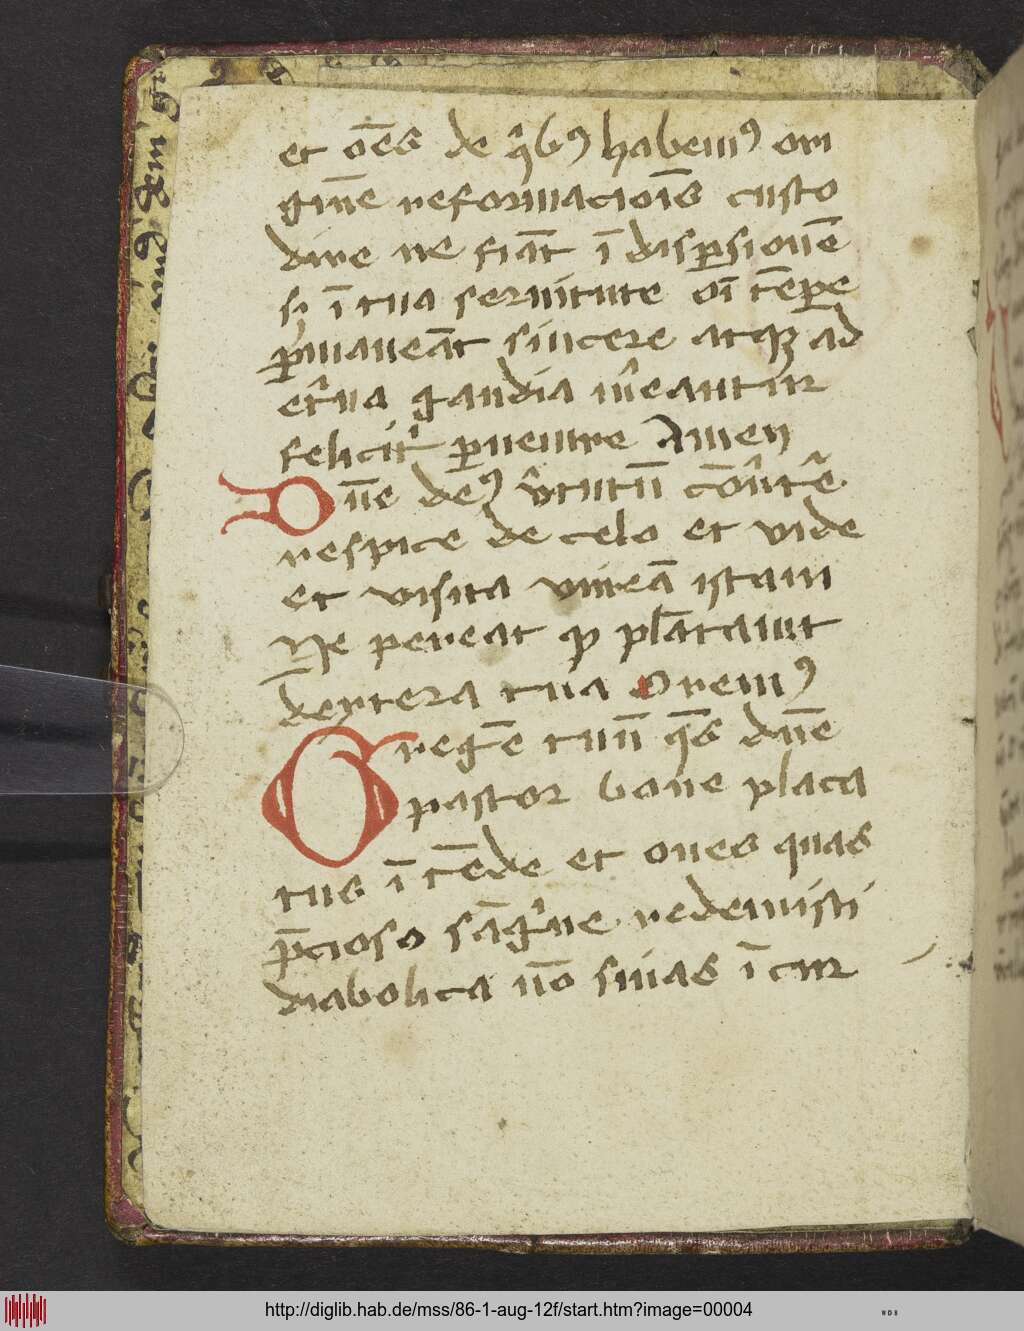 et oēs de qͥbꝯ habemꝯ ori
gine̅ reformacioīs custo
dire ne fiāt ī dispersionē
sꝫ ī tua seruitute oī tēpore
ꝑmaneāt sincere atqꝫ ad
et̓na gaudia m̓eantur
felicit̓ ꝑuenire Amen
Dn̄e deꝯ v̓tutū cōu̓tē
respice de celo et vide
et visita vineā istam
Ne pereat qͦ plātauit
dextera tua Oremꝯ
Gregē tuū qs̄ dn̄e
pastor bone placa
tus ītēde et oues quas
p̄cioso sāgͥne redemisti
diabolica nō sinas ī cur
http://diglib.hab.de/mss/86-1-aug-12f/start.htm?image=00004